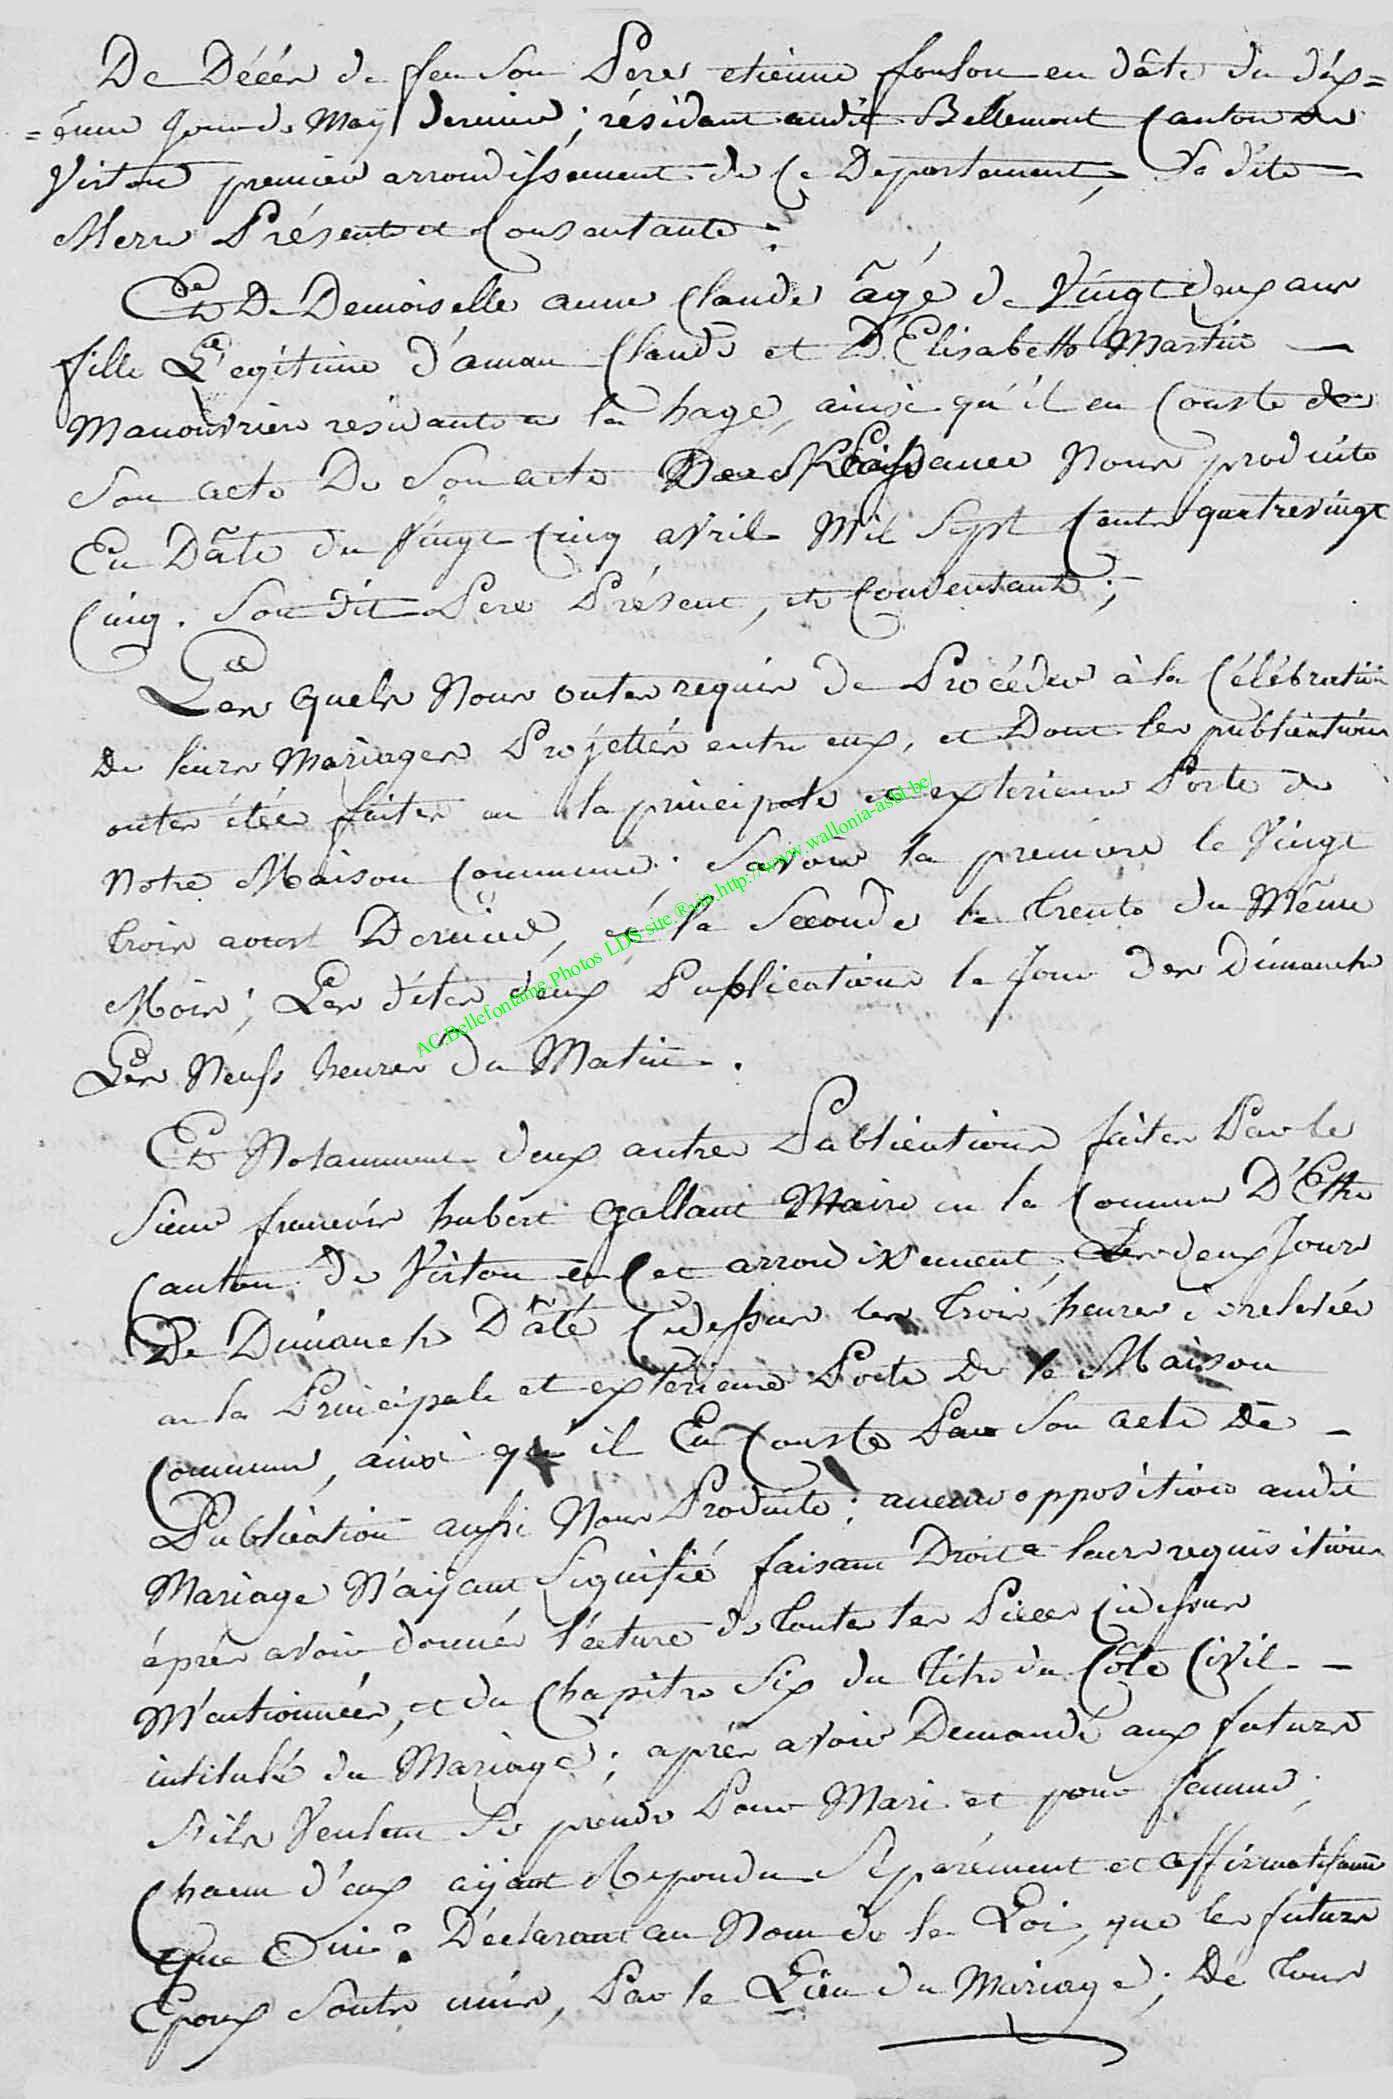 De Décés de feu Son Pere etienne fonson en dâte du dix=
=éeme Jour de May dernier; résidant audit Bellemont Canton de
Virton premier arrondissement de Ce Departement, Sa dite
Mere Présente et Consentante:
Et De Demoiselle anne Claude âgé de Vingt deux ans
fille Légitime d'aman Claude et D'Elisabette Martin
Manouvrier residante a la hage, ainsi qu'il en Conste de
Son acte De Son acte De Naissance Nous produite
En Dâte du Vingt Cinq avril Mil Sept Cents quatrevingt
Cinq. Son dit Pere Présent, et Consentant;
Les quels Nous ontes requis de Procéder à la Célébration
De leurs Mariages Projettés entre eux, et Dont les publications
ontes étée faites au la principale et exterieure Porte de
Notre Maison Commune: Savoir la premiere le Vingt
trois aoust Dernier, et la Seconde le trente du Même
Mois; Les dites deux Publications le Jour des Dimanche
Les Neufs heures du Matin.
Et Notamment deux autres Publications faites Par le
Sieur francois hubert Gallant Maire en la Commune D'Ethe
Canton de Virton en Cet arrondissement, Les deux Jours
De Dimanche Dâté Cidessus les trois heures de relevées
au la Principale et exterieure Porte de la Maison
Commune, ainsi qu'il En Conste Par Son acte De
Publication aussi Nous Produite; aucune opposition audit
Mariage N'aÿant Signifié faisant Droit a leurs requisitions
éprés avoir donnés l'écture de toutes les Pieces Cidessus
M'entionnées, et du Chapitre Six du Titre du Côde Civil
intitulé du Mariage; aprés avoir Demandé aux futurs
S'ils Veulent Se prendre Pour Mari et pour femme;
Chacun d'eux aÿant Repondu Séparément et affirmativement
que Oui: Déclarant au Nom de la Loi, que les futurs
Epoux Sonts unis, Par le Lien du Mariage; De tous
AC.Bellefontaine.Photos LDS site ®via http://www.wallonia-asbl.be/